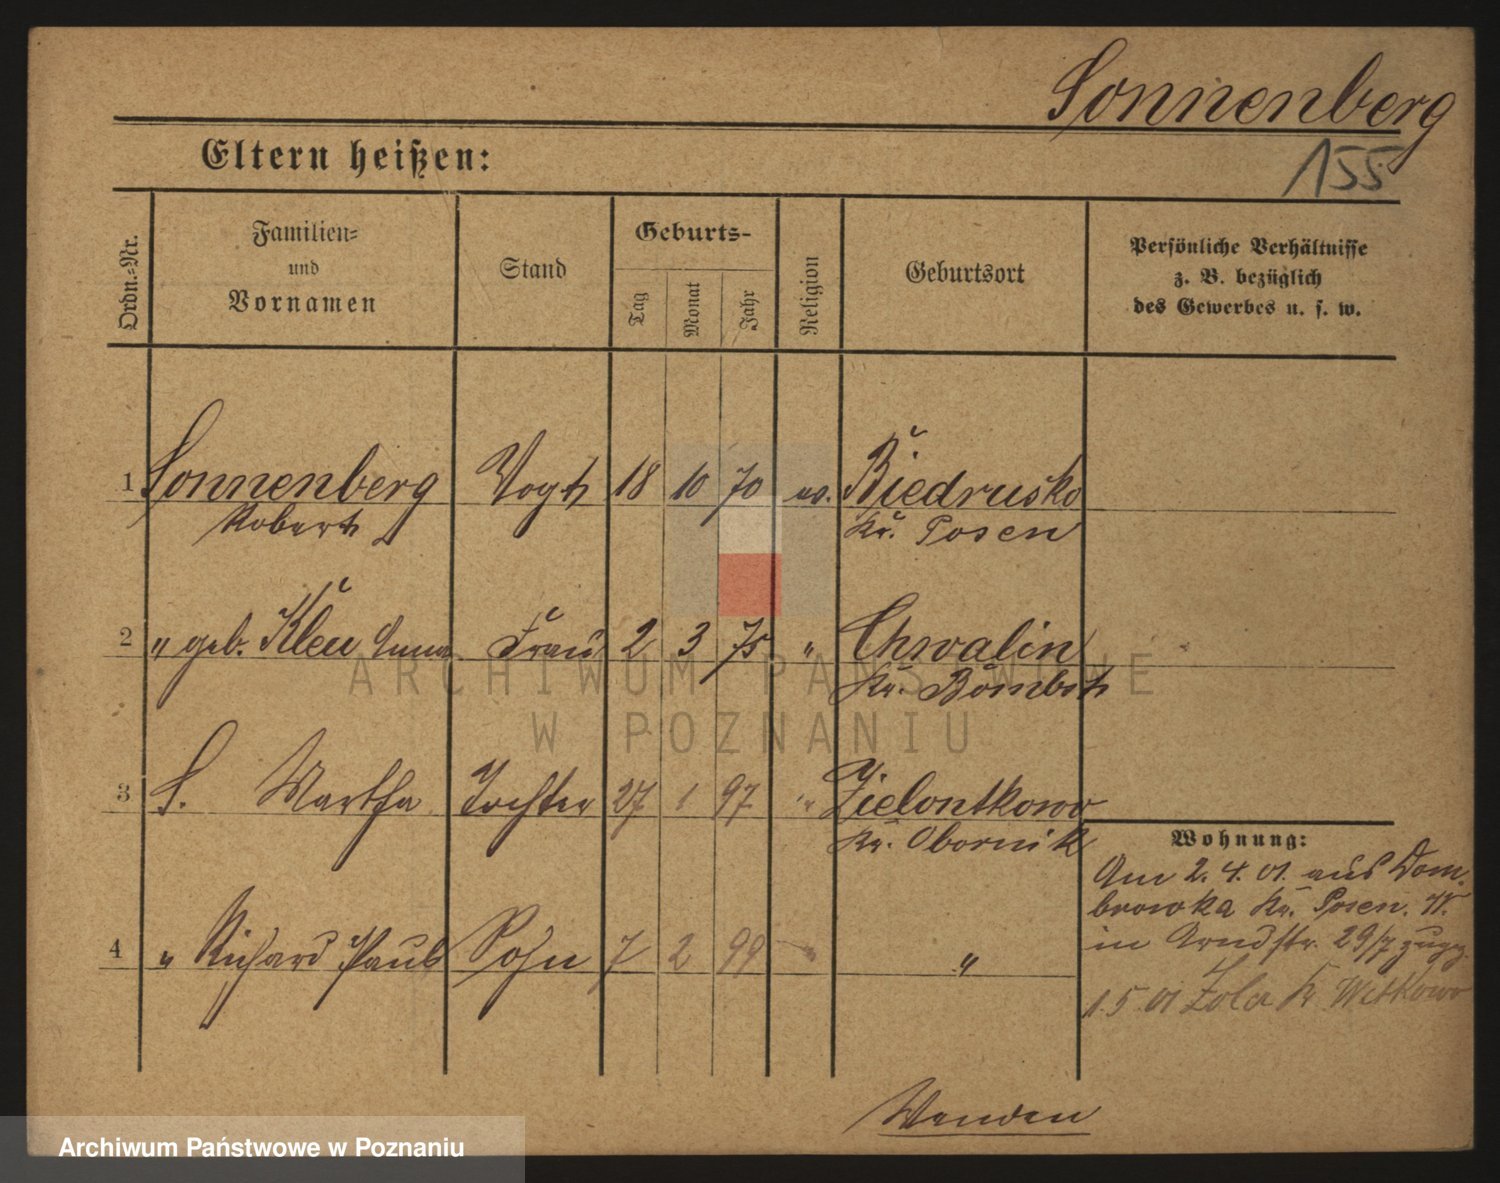 Sonnenberg
155
Eltern heißen:
Ordn.-Nr.
Familien=
und
Vornamen
Stand
Geburts-
Tag
Monat
Jahr
Religion
Geburtsort
Persönliche Verhältnisse
z. B. bezüglich
des Gewerbes u. s. w.
1 Sonnenberg Vogt 18 10 70 ev. Biedrusko
Robert Kr. Posen
2 " geb. Kleu Anna Frau 2 3 75 " Chwalin
Kr. Bombst
3 S. Martha Tochter 27 1 97 " Zielontkowo
Kr. Obornik
4 " Richard Paul Sohn 7 2 99 " "
Wohnung:
Am 2. 4. 01. aus Dom.
browka Kr. Posen. W.
in Arndstr. 29/7 zugez.
1. 5. 01 Zola Kr. Witkowo
Wenden
ARCHIWUM PAŃSTWOWE
W POZNANIU
Archiwum Państwowe w Poznaniu